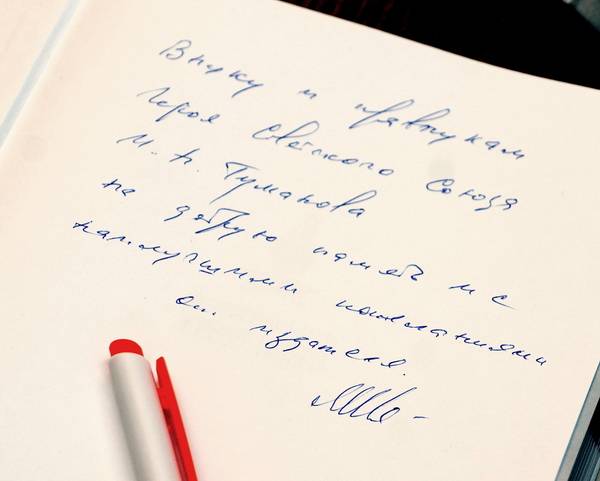 Внуку и правнукам
Героя Советского Союза
И. Н. Туманова
на добрую память и с
наилучшими пожеланиями
от издателя.